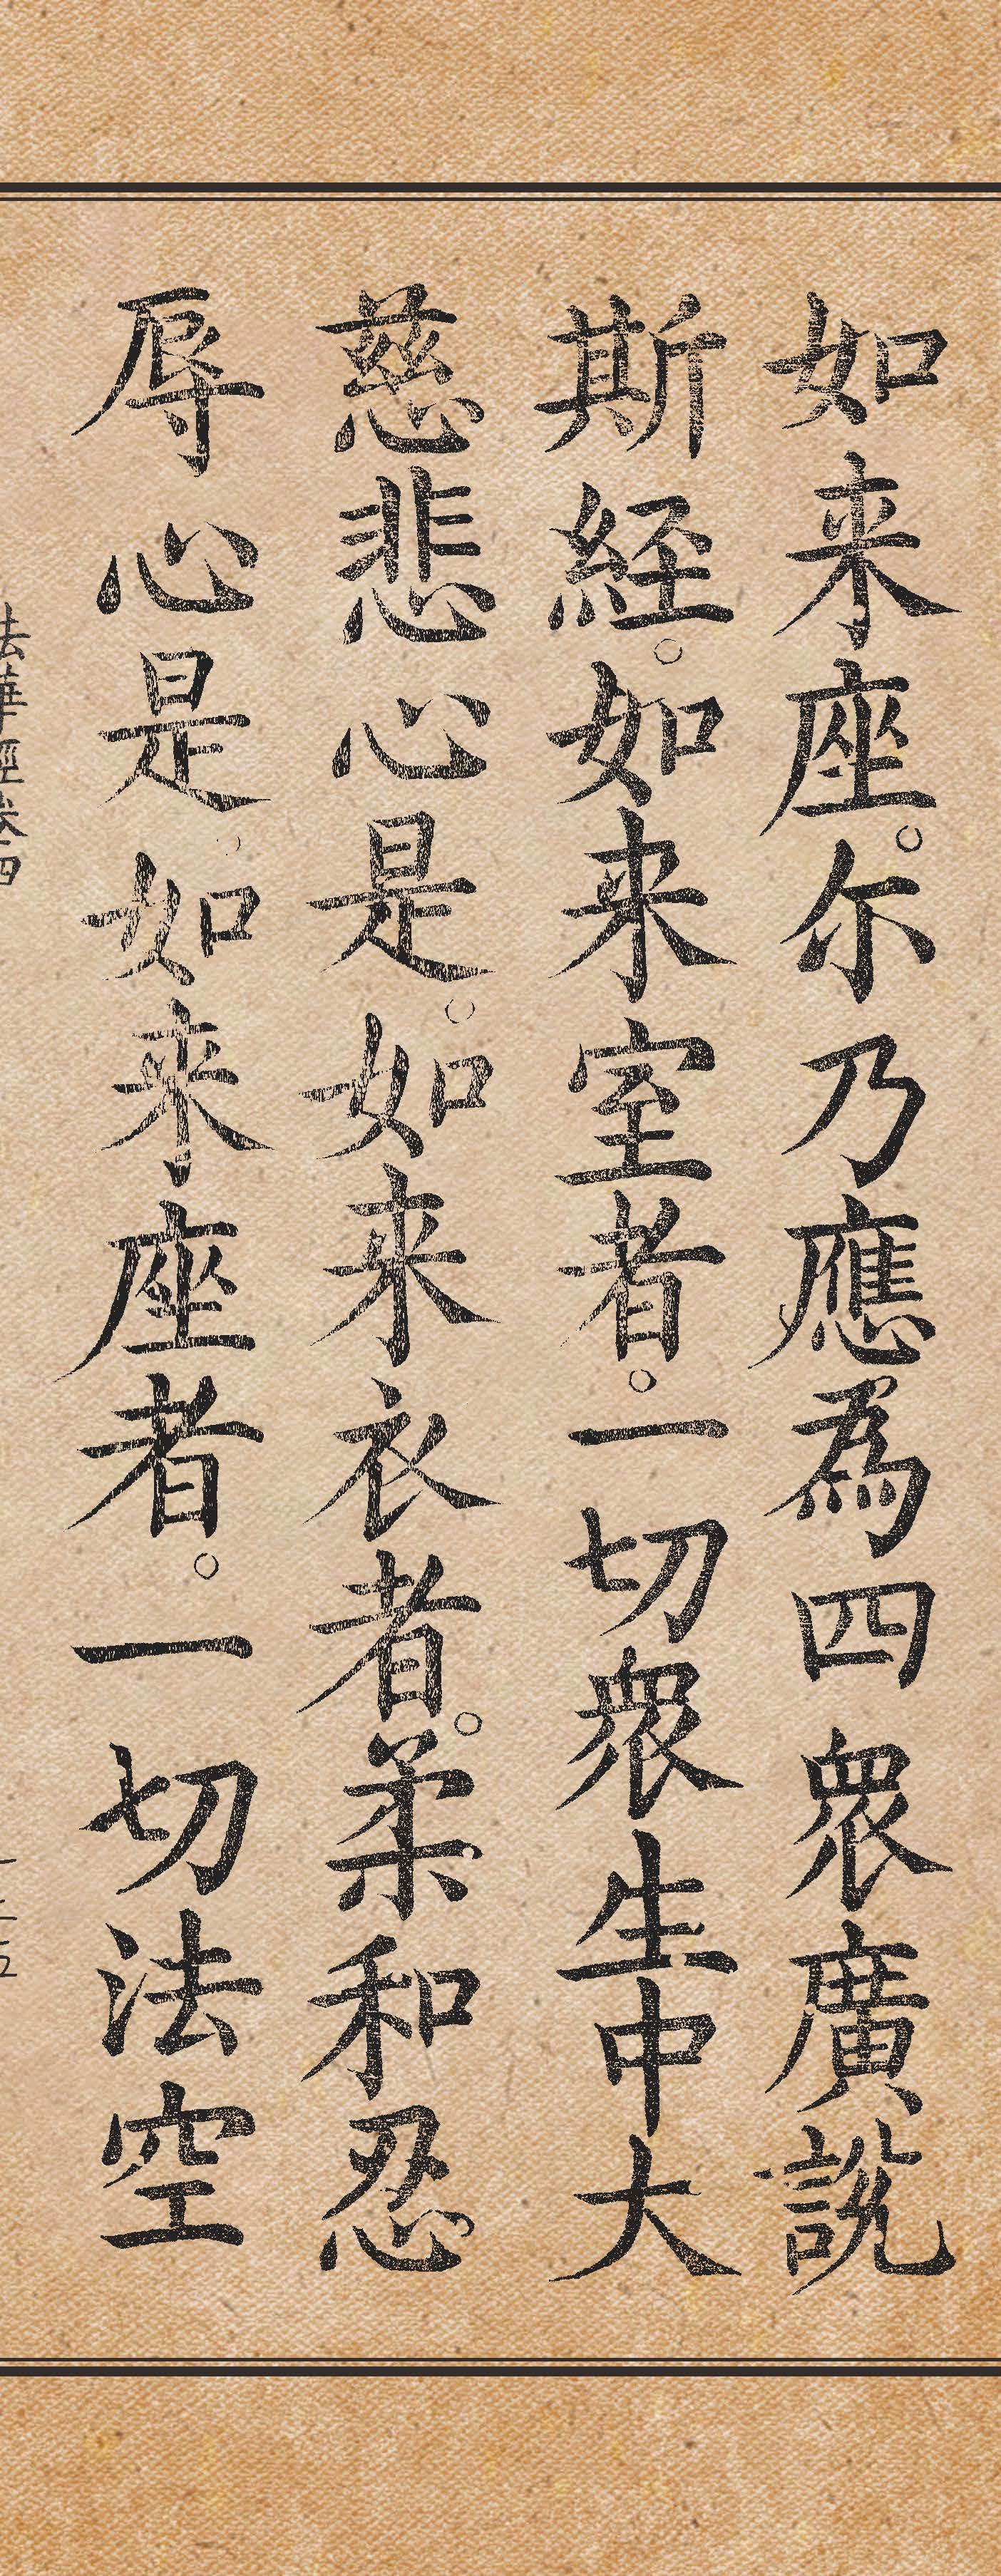 如来座。尓乃應為四衆廣說
斯經。如来室者。一切衆生中大
慈悲心是。如来衣者。柔和忍
辱心是。如来座者。一切法空
法華經卷四